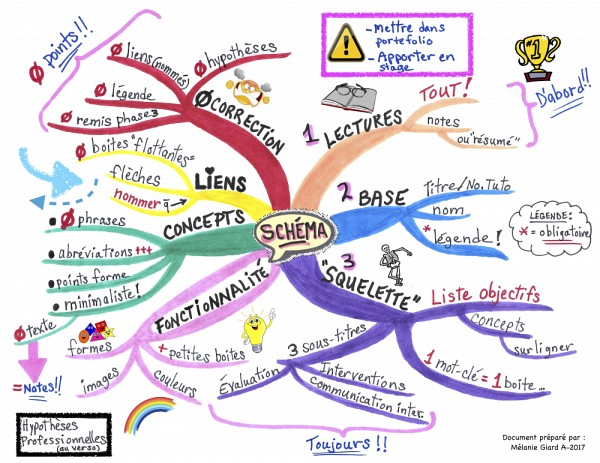 Ø points!!
Ø hypothèses
liens (nommés)
Ø légende
Ø remis phase 3
Ø CORRECTION
- Mettre dans
portefolio
- Apporter en
stage
#1
D'abord!!
TOUT!
notes
ou "résumé"
1 LECTURES
Ø boîtes "flottantes"
flèches
nommer q →
LIENS
2 BASE
Titre/No.Tuto
nom
* légende!
LÉGENDE:
* = obligatoire
SCHÉMA
CONCEPTS
• Ø phrases
• abréviations +++
• points forme
• minimaliste!
Ø texte
= Notes!!
3 "SQUELETTE"
Liste objectifs
concepts
surligner
1 mot-clé = 1 boîte...
3 sous-titres
Évaluation
Interventions
communication inter.
Toujours!!
FONCTIONNALITÉ
formes
+ petites boîtes
images
couleurs
Hypothèses
Professionnelles
(au verso)
Document préparé par :
Mélanie Giard A-2017